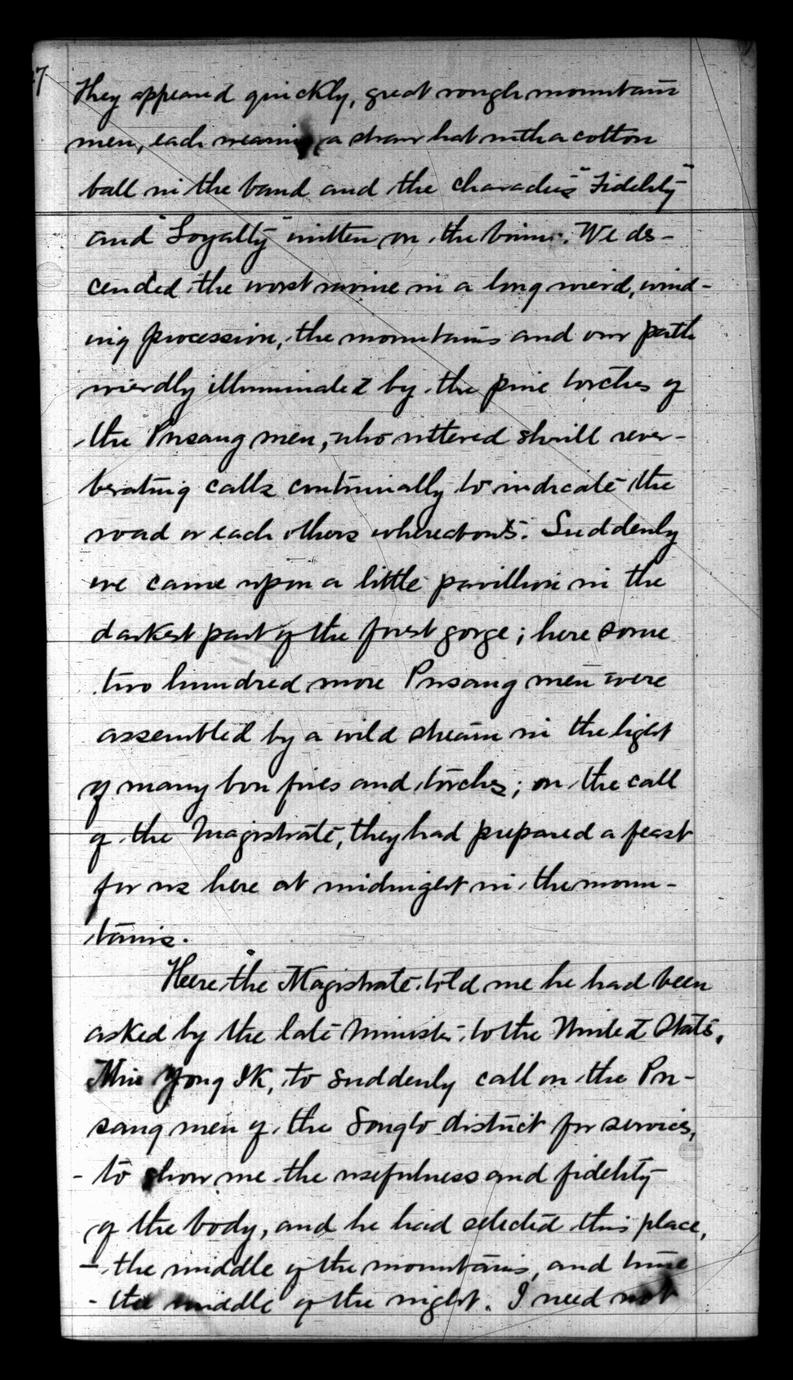 7
They appeared quickly, great rough mountain
men, each wearing a straw hat with a cotton
ball in the band and the characters "Fidelity"
and "Loyalty" written on the brim. We des-
cended the worst ravine in a long weird, wind-
ing procession, the mountains and our path
weirdly illuminated by the pine torches of
the Pusang men, who uttered shrill rever-
berating calls continually to indicate the
road or each others whereabouts. Suddenly
we came upon a little pavillion in the
darkest part of the forest gorge; here some
two hundred more Pusang men were
assembled by a wild stream in the light
of many bon fires and torches; on the call
of the Magistrate, they had prepared a feast
for us here at midnight in the moun-
tains.
Here the Magistrate told me he had been
asked by the late Minister to the United States,
Min Yong Ik, to suddenly call on the Pu-
sang men of the Songto district for services,
- to show me the usefulness and fidelity
of the body, and he had selected this place,
- the middle of the mountains, and time
- the middle of the night. I need not